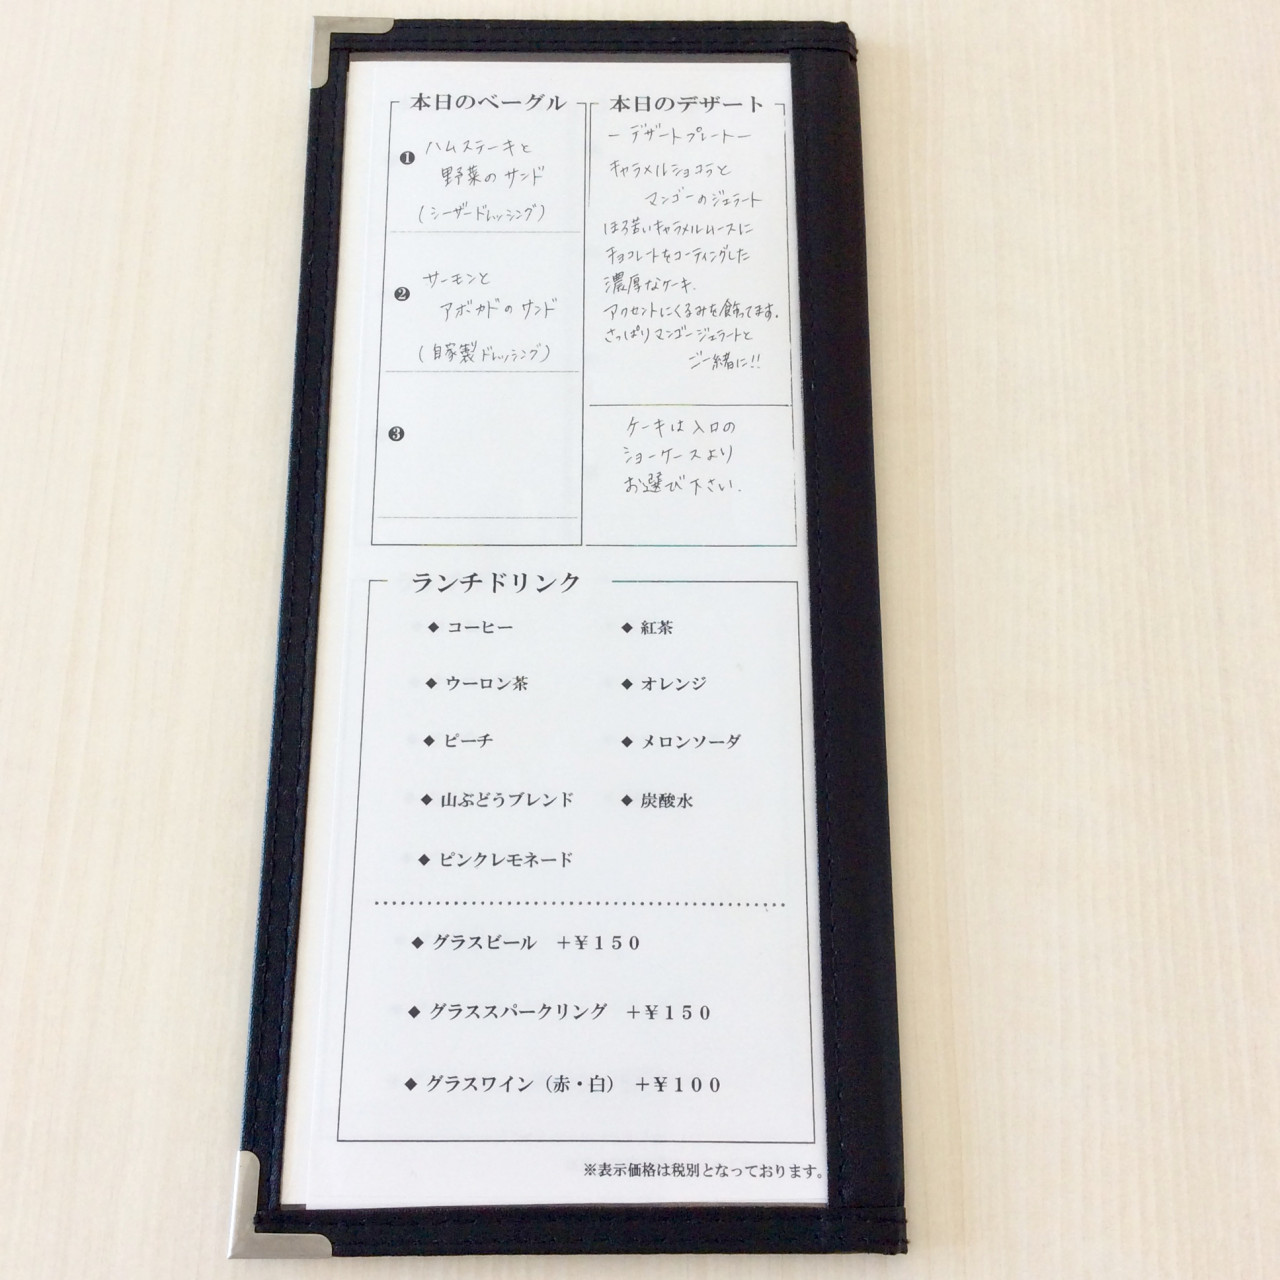 本日のベーグル
❶ ハムステーキと
野菜のサンド
(シーザードレッシング)
❷ サーモンと
アボカドのサンド
(自家製ドレッシング)
❸
本日のデザート
ーデザートプレートー
キャラメルショコラと
マンゴーのジェラート
ほろ苦いキャラメルムースに
チョコレートをコーティングした
濃厚なケーキ.
アクセントにくるみを飾ってます.
さっぱりマンゴージェラートと
ご一緒に!!
ケーキは入口の
ショーケースより
お選び下さい.
ランチドリンク
◆ コーヒー
◆ 紅茶
◆ ウーロン茶
◆ オレンジ
◆ ピーチ
◆ メロンソーダ
◆ 山ぶどうブレンド
◆ 炭酸水
◆ ピンクレモネード
◆ グラスビール ＋￥１５０
◆ グラススパークリング ＋￥１５０
◆ グラスワイン（赤・白） ＋￥１００
※表示価格は税別となっております。